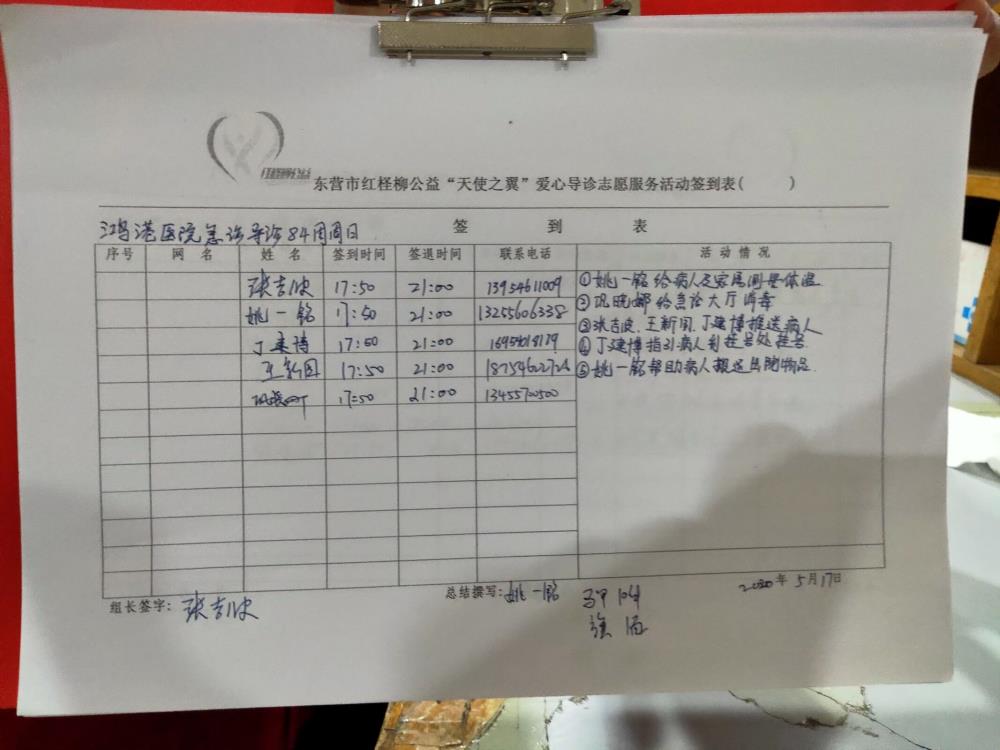 东营市红柽柳公益“天使之翼”爱心导诊志愿服务活动签到表( )
签 到 表
鸿港医院急诊导诊84周周日
序号 网 名 姓 名 签到时间 签退时间 联系电话 活 动 情 况
张吉波 17:50 21:00 13954611009 ①姚一铭给病人及家属测量体温
姚一铭 17:50 21:00 13255606338 ②巩晓娜给急诊大厅消毒
丁建博 17:50 21:00 ③张吉波、王新国、丁建博推送病人
④丁建博指引病人到挂号处挂号
王新国 17:50 21:00 ⑤姚一铭帮助病人搬运出院物品
17:50 21:00 13455700500
组长签字: 张吉波
总结撰写: 姚一铭
2020年5月17日